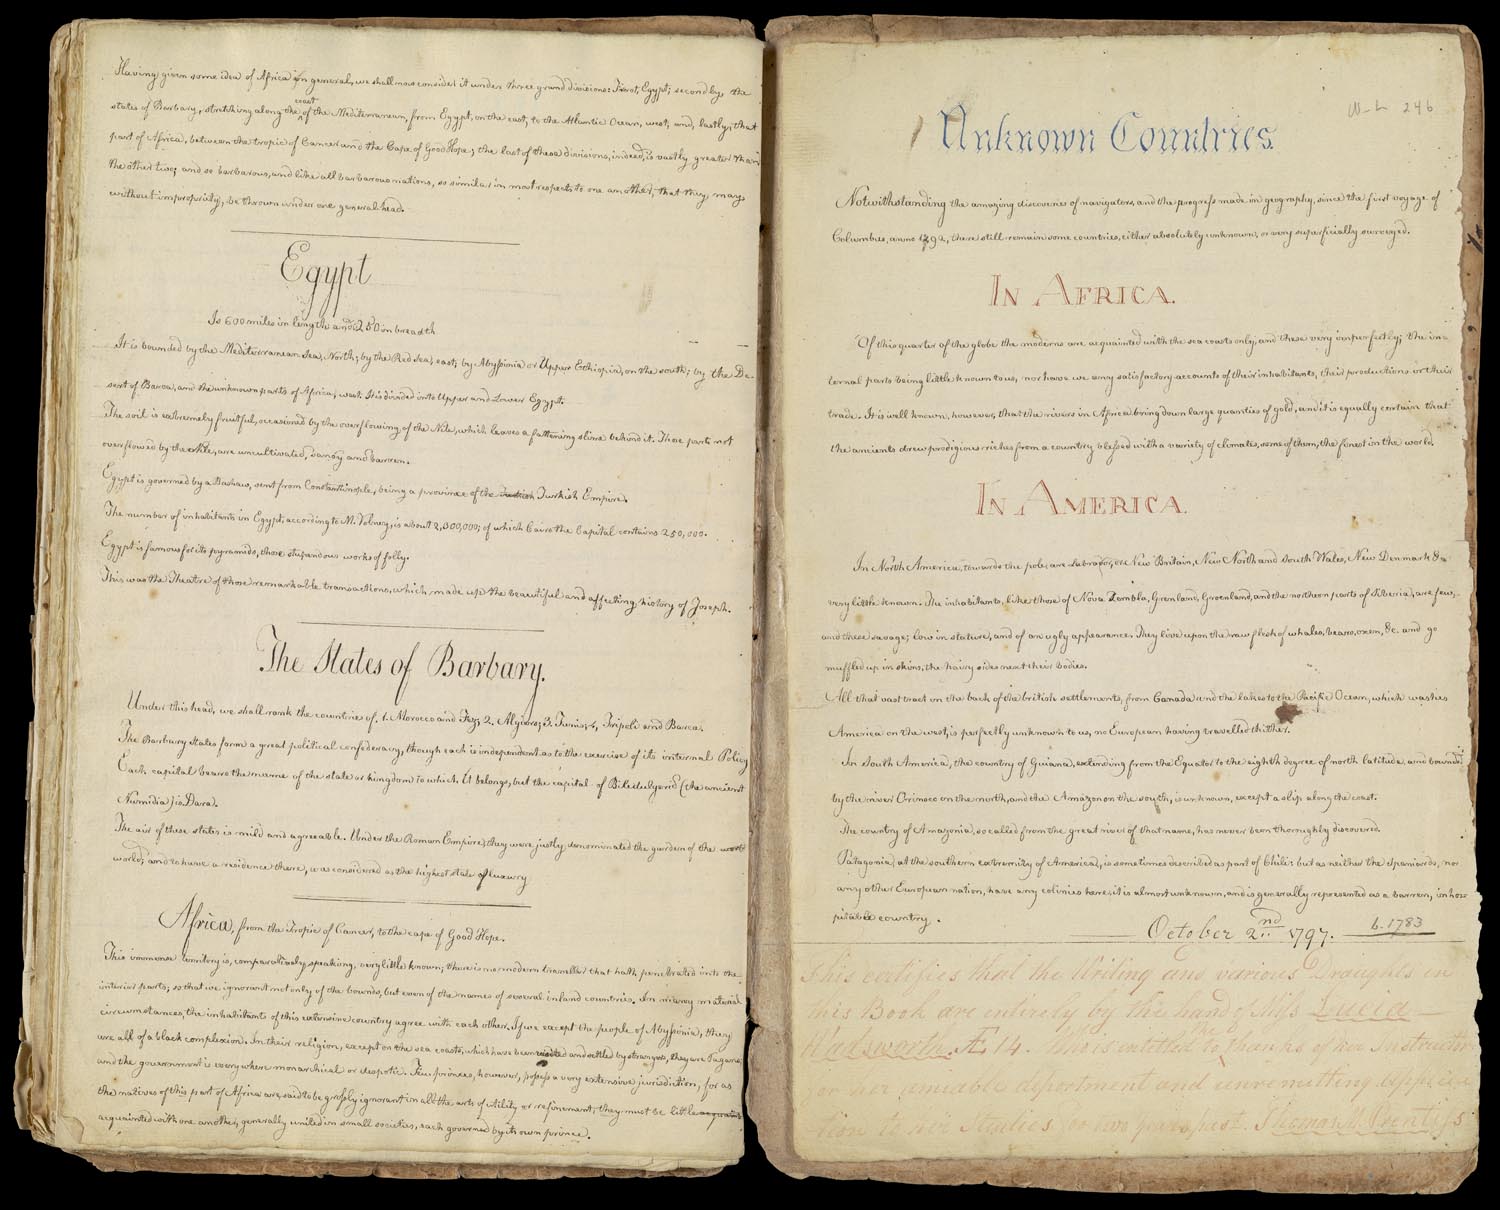 Having given some idea of Africa in general, we shall now consider it under three grand divisions: First, Egypt; secondly, the
states of Barbary, stretching along the coast of the Mediterranean, from Egypt, on the east, to the Atlantic Ocean, west; and, lastly, that
part of Africa, between the tropic of Cancer and the Cape of Good Hope; the last of these divisions, indeed, is vastly greater than
the other two; and so barbarous, and like all barbarous nations, so similar in most respects to one another, that they may,
without impropriety, be thrown under one general head.
Egypt
Is 600 miles in length and 250 in breadth
It is bounded by the Mediterranean Sea, North; by the Red Sea, east; by Abyssinia or Upper Ethiopia, on the south; by the De-
sert of Barca, and the unknown parts of Africa, west. It is divided into Upper and Lower Egypt.
The soil is extremely fruitful, occasioned by the overflowing of the Nile, which leaves a fattening slime behind it. Those parts not
overflowed by the Nile, are uncultivated, sandy and barren.
Egypt is governed by a Bashaw, sent from Constantinople, being a province of the Turkish Empire.
The number of inhabitants in Egypt, according to M. Volney, is about 2,300,000; of which Cairo the Capital contains 250,000.
Egypt is famous for its pyramids, those stupendous works of folly.
This was the Theatre of those remarkable transactions, which made up the beautiful and affecting history of Joseph.
The States of Barbary.
Under this head, we shall rank the countries of, 1. Morocco and Fez; 2. Algiers; 3. Tunis; 4, Tripoli and Barca.
The Barbary States form a great political confederacy, though each is independent as to the exercise of its internal Policy
Each capital bears the name of the state or kingdom to which it belongs, but the capital of Biledulgerid (the ancient
Numidia) is Dara.
The air of these states is mild and agreeable. Under the Roman Empire, they were justly denominated the garden of the world
world; and to have a residence there, was considered as the highest state of luxury
Africa, from the Tropic of Cancer, to the cape of Good Hope.
This immense territory is, comparatively speaking, very little known; there is no modern traveller that hath penetrated into the
interior parts; so that we ignorant not only of the bounds, but even of the names of several inland countries. In many material
circumstances, the inhabitants of this extensive country agree with each other. If we except the people of Abyssinia, they
are all of a black complexion. In their religion, except on the sea coasts, which have been visited and settled by strangers, they are Pagans;
and the government is every where monarchical or despotic. Few princes, however, possess a very extensive jurisdiction; for as
the natives of this part of Africa are said to be grossly ignorant in all the arts of utility or refinement, they must be little acquaint
acquainted with one another; generally united in small societies, each governed by its own prince.
246
Unknown Countries
Notwithstanding the amazing discoveries of navigators, and the progress made in geography, since the first voyage of
Columbus, anno 1792, there still remain some countries, either absolutely unknown, or very superficially surveyed.
IN AFRICA.
Of this quarter of the globe the moderns are acquainted with the sea coasts only, and these very imperfectly; the in-
ternal parts being little known to us, nor have we any satisfactory accounts of their inhabitants, their productions or their
trade. It is well known, however, that the rivers in Africa bring down large quantities of gold, and it is equally certain that
the ancients drew prodigious riches from a country blessed with a variety of climates, some of them, the finest in the world.
IN AMERICA.
In North America, towards the pole, are Labrador, or New Britain, New North and South Wales, New Denmark &c
very little known. The inhabitants, like those of Nova Zembla, Grenland, Groenland, and the northern parts of Siberia, are few,
and these savage; low in stature, and of an ugly appearance. They live upon the raw flesh of whales, bears, oxen, &c. and go
muffled up in skins, the hairy sides next their bodies.
All that vast tract on the back of the british settlements, from Canada and the lakes to the Pacific Ocean, which washes
America on the west, is perfectly unknown to us, no European having travelled thither.
In South America, the country of Guiana, extending from the Equator to the eighth degree of north latitude, and bounded
by the river Orinoco on the north, and the Amazon on the south, is unknown, except a slip along the coast.
The country of Amazonia, so called from the great river of that name, has never been thoroughly discovered.
Patagonia, at the southern extremity of America, is sometimes described as part of Chili: but as neither the Spaniards, nor
any other European nation, have any colonies here, it is almost unknown, and is generally represented as a barren, inhos-
pitable country.
October 2nd 1797. b. 1783
This certifies that the Writing and various Draughts in
this Book are entirely by the hand of Miss Lucia
Wadsworth. Æ 14. Who is entitled to thanks of her Instructor
for her amiable deportment and unremitting applica
tion to her Studies for two years past. Thomas M. Prentiss